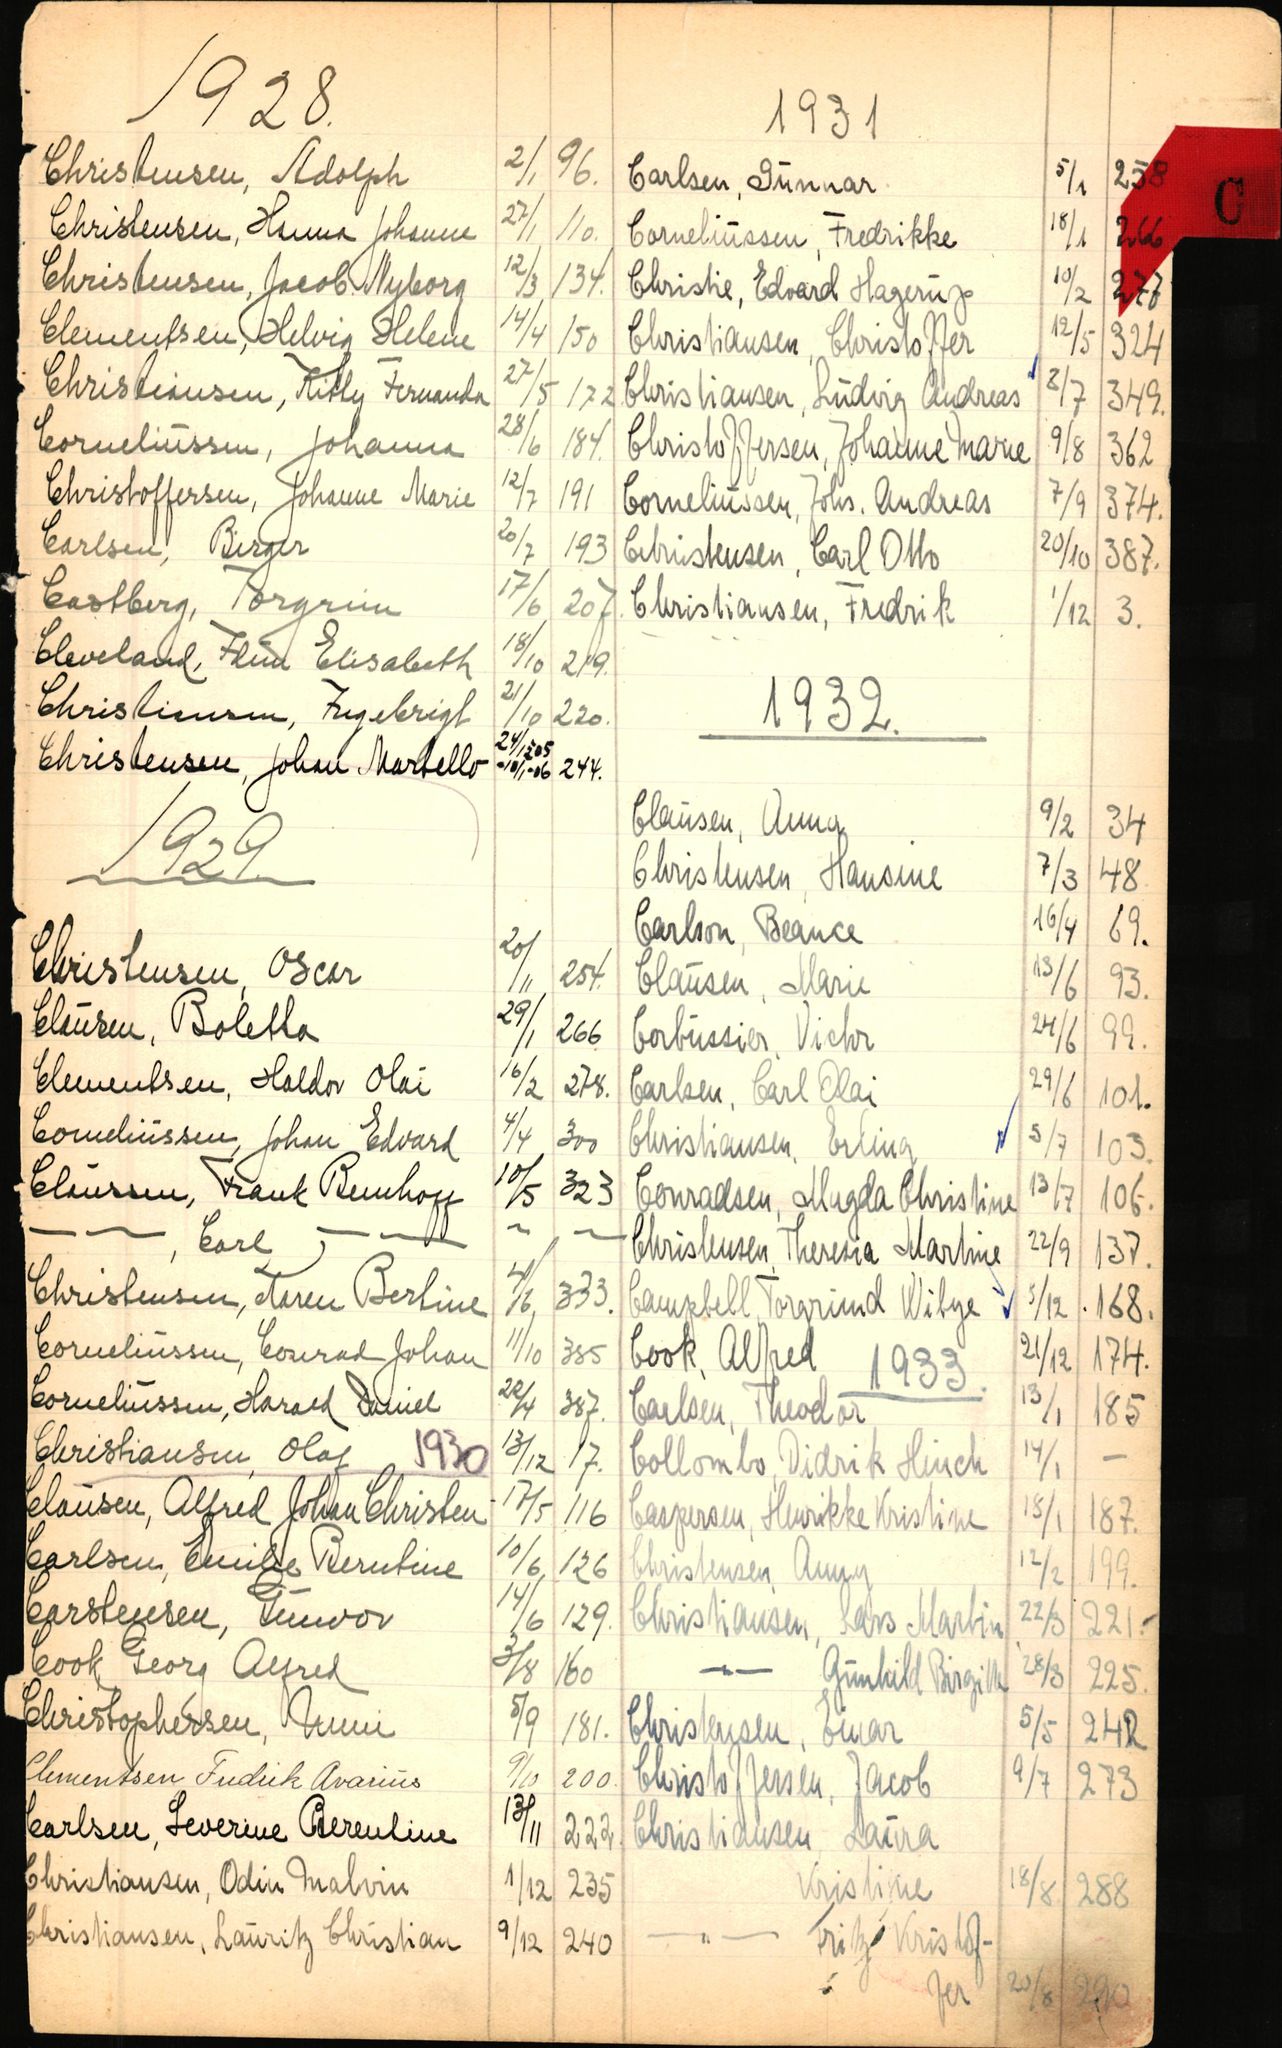 1928.
Christensen, Adolph 2/1 96.
Christensen, Hanna Johanne 27/1 110.
Christensen, Jacob Nyborg 12/3 134.
Clementsen, Helvig Helene 14/4 150
Christiansen, Kitty Fernanda 27/5 172
Corneliussen, Johanna 28/6 184.
Christoffersen, Johanne Marie 12/7 191
Carlsen, Birger 20/7 193
Castberg, Torgrim 17/6 207.
Cleveland, Elisabeth 18/10 219.
Christiansen, Ingebrigt 21/10 220.
Christensen, Johan Martello 244.
1929.
Christensen, Oscar 20/11 254.
Clausen, Boletta 29/1 266
Clementsen, Haldor Olai 16/2 278.
Corneliussen, Johan Edvard 4/4 300
Claussen, Frank Bernhoff 10/5 323
— — , Carl, — — ~ ~
Christensen, Karen Bertine 4/6 333.
Corneliussen, Conrad Johan 11/10 385
Corneliussen, Harald Daniel 22/4 387.
Christiansen, Olaf 1930 13/12 17.
Clausen, Alfred Johan Christen 17/5 116
Carlsen, Emilie Berntine 10/6 126
Carstensen, Gunvor 14/6 129.
Cook, Georg Alfred 3/8 160
Christophersen, 5/9 181.
Clementsen Fredrik Avarius 9/10 200.
Carlsen, Severine Berentine 13/11 222.
Christiansen, Odin Malvin 1/12 235
Christiansen, Lauritz Christian 9/12 240
1931
Carlsen, Gunnar 5/1 258
Corneliussen, Fredrikke 18/1 266
Christie, Edvard Hagerup 10/2 277
Christiansen, Christoffer 12/5 324
Christiansen, Ludvig Andreas 8/7 349.
Christoffersen, Johanne Marie 9/8 362
Corneliussen, Johs. Andreas 7/9 374.
Christensen, Carl Otto 20/10 387.
Christiansen, Fredrik 1/12 3.
1932.
Clausen, Anna 9/2 34
Christensen, Hansine 7/3 48
Carlson, Beance 16/4 69.
Clausen, Marie 13/6 93.
Corbussier, Victor 24/6 99.
Carlsen, Carl Olai 29/6 101.
Christiansen, Erling 5/7 103.
Conradsen, Magda Christine 13/7 106.
Christensen, Theresia Martine 22/9 137.
Campbell, Torgrimd Wibye 5/12 168.
Cook, Alfred 21/12 174.
1933.
Carlsen, Theodor 13/1 185
Collombo, Didrik Hinch 14/1 —
Caspersen, Henrikke Kristine 18/1 187.
Christensen, Anny 12/2 199.
Christiansen, Lars Martin 22/3 221.
—"— Gunhild Birgitte 28/3 225.
Christensen, Einar 5/5 242
Christoffersen, Jacob 9/7 273
Christiansen, Laura
Kristine 18/8 288
—"— Fritz Kristof-
fer 20/8 290
C